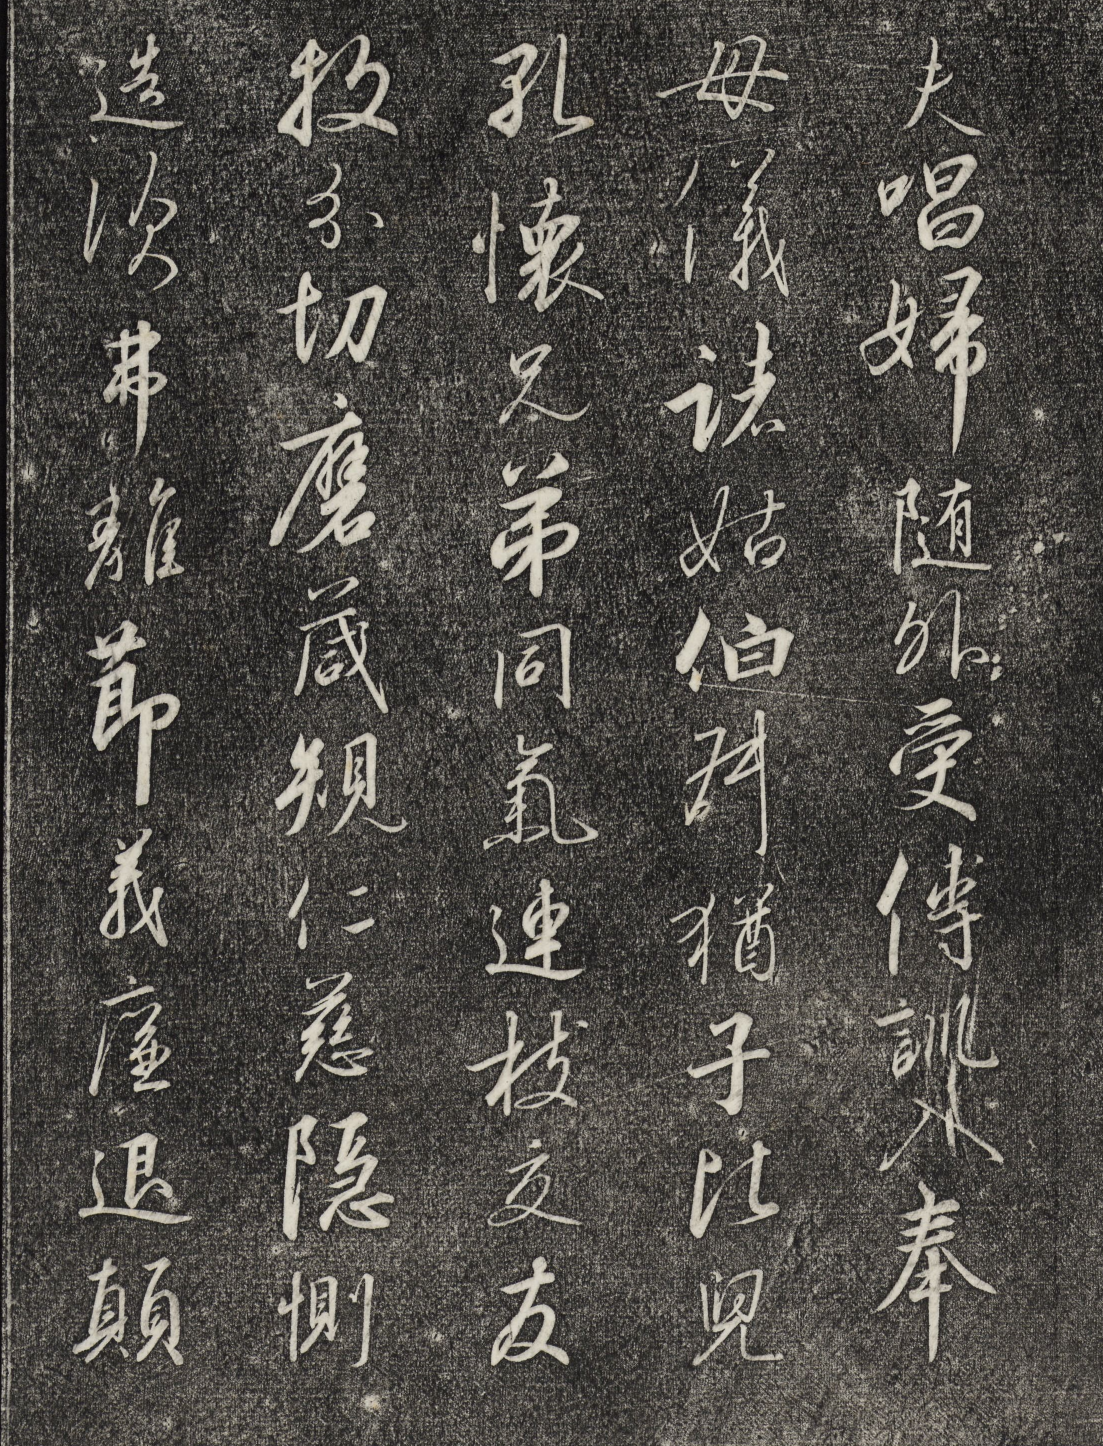 夫唱婦随外受傅訓入奉
母儀諸姑伯叔猶子比兒
孔懷兄弟同氣連枝交友
投分切磨箴規仁慈隠惻
造次弗離莭義廉退顛